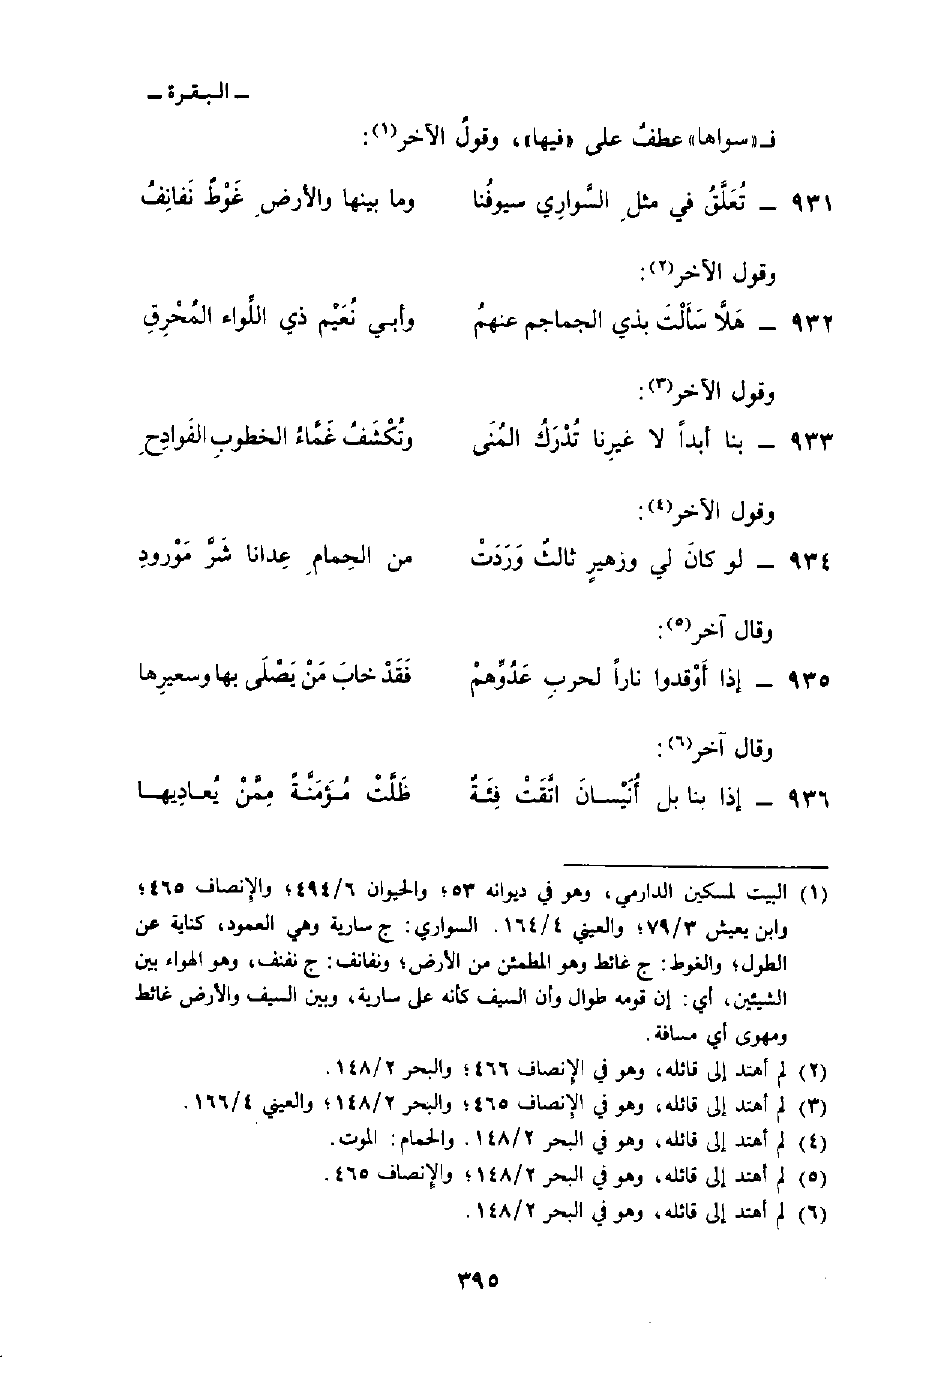 ـ البقرة ـ
فـ «سواها» عطفٌ على «فيها»، وقولُ الآخر(١):
٩٣١ ـ تُعَلَّقُ في مثلِ السَّواري سيوفُنا وما بينها والأرضِ غَوْطٌ نَفانِفُ
وقول الآخر(٢):
٩٣٢ ـ هَلَّا سَأَلْتَ بذي الجماجم عنهمُ وأبي نُعَيْم ذي اللِّواء المُحْرِقِ
وقول الآخر(٣):
٩٣٣ ـ بنا أبداً لا غيرِنا تُدْرَكُ المُنَى وتُكْشَفُ غَمَّاءُ الخطوبِ الفَوادِحِ
وقول الآخر(٤):
٩٣٤ ـ لو كانَ لي وزهيرٍ ثالثٌ وَرَدَتْ من الحِمامِ عِدانا شَرَّ مَوْرودِ
وقال آخر(٥):
٩٣٥ ـ إذا أَوْقدوا ناراً لحربِ عَدُوِّهمْ فَقَدْ خابَ مَنْ يَصْلَى بها وسعيرِها
وقال آخر(٦):
٩٣٦ ـ إذا بنا بل أُنَيْسانَ اتَّقَتْ فِئَةٌ ظَلَّتْ مُؤَمَّنَةً مِمَّنْ يُعاديها
(١) البيت لمسكين الدارمي، وهو في ديوانه ٥٣؛ والحيوان ٤٩٤/٦؛ والإنصاف ٤٦٥؛
وابن يعيش ٧٩/٣؛ والعيني ١٦٤/٤. السواري: ج سارية وهي العمود، كناية عن
الطول؛ والغوط: ج غائط وهو المطمئن من الأرض؛ ونفانف: ج نفنف، وهو الهواء بين
الشيئين، أي: إن قومه طوال وأن السيف كأنه على سارية، وبين السيف والأرض غائط
ومهوى أي مسافة.
(٢) لم أهتد إلى قائله، وهو في الإنصاف ٤٦٦؛ والبحر ١٤٨/٢.
(٣) لم أهتد إلى قائله، وهو في الإنصاف ٤٦٥؛ والبحر ١٤٨/٢؛ والعيني ١٦٦/٤.
(٤) لم أهتد إلى قائله، وهو في البحر ١٤٨/٢. والحمام: الموت.
(٥) لم أهتد إلى قائله، وهو في البحر ١٤٨/٢؛ والإنصاف ٤٦٥.
(٦) لم أهتد إلى قائله، وهو في البحر ١٤٨/٢.
٣٩٥